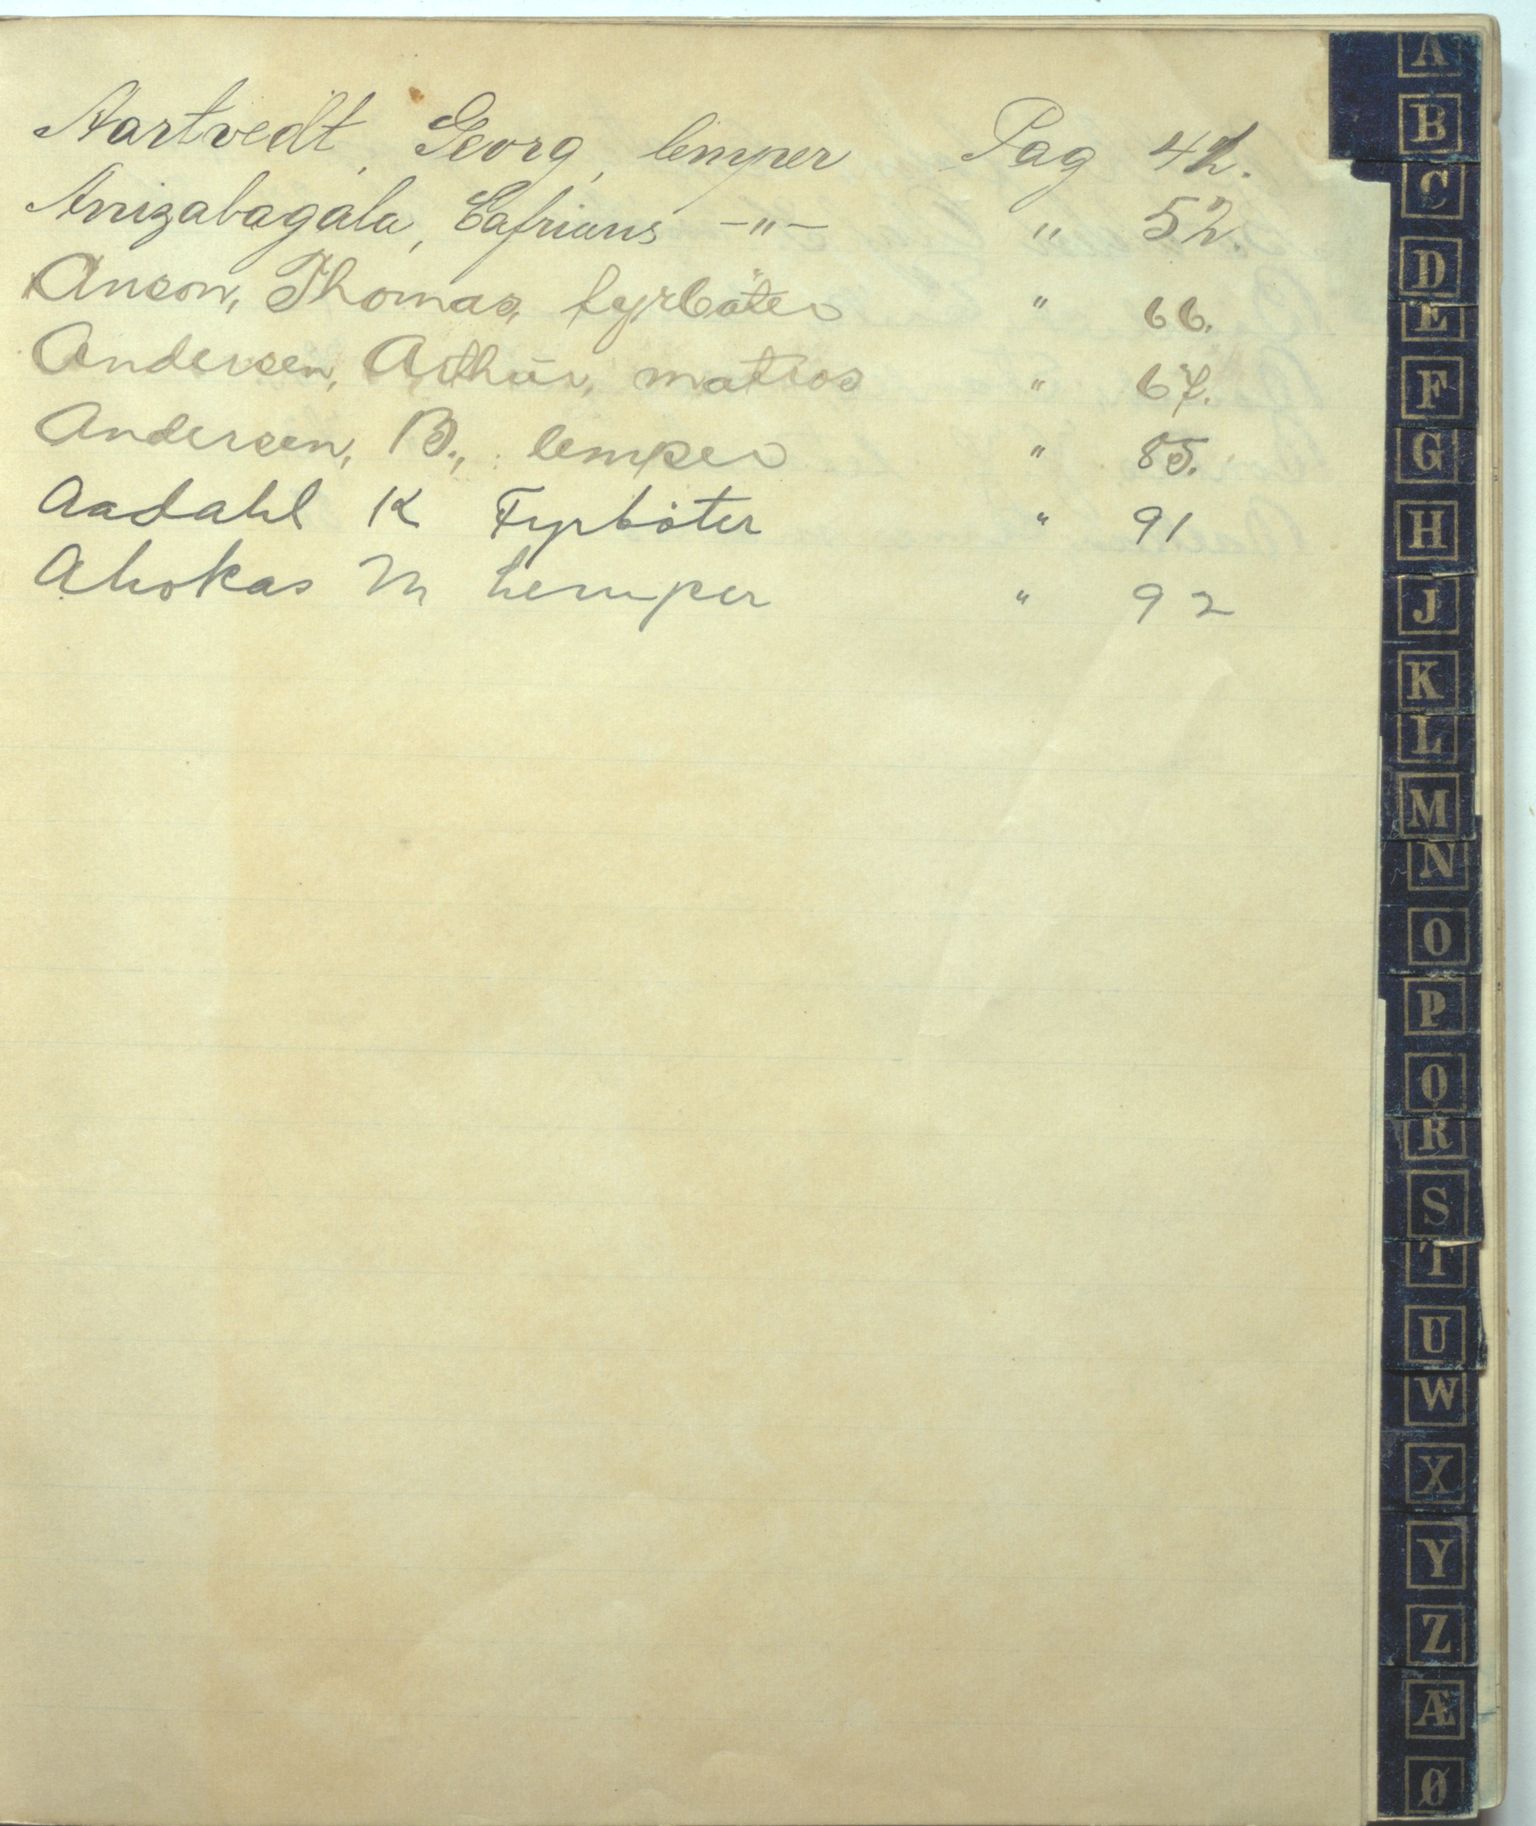 Aartvedt, Georg, lemper Pag 42.
Anizabagala, Cafrians -"- " 52.
Anson, Thomas, fyrböter " 66.
Andersen, Arthur, matros " 67.
Andersen, B., lemper " 85.
Aadahl K Fyrböter " 91
Ahokas M Lemper " 92
A
B
C
D
E
F
G
H
J
K
L
M
N
O
P
Q
R
S
T
U
W
X
Y
Z
Æ
Ø